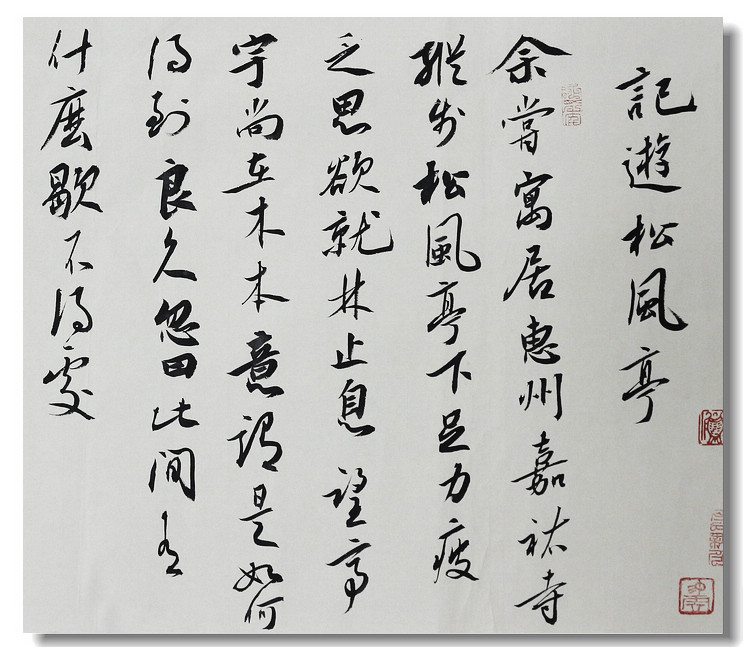 記遊松風亭
余嘗寓居惠州嘉祐寺
縱步松風亭下足力疲
乏思欲就林止息望亭
宇尚在木末意謂是如何
得到良久忽曰此間有
什麽歇不得處